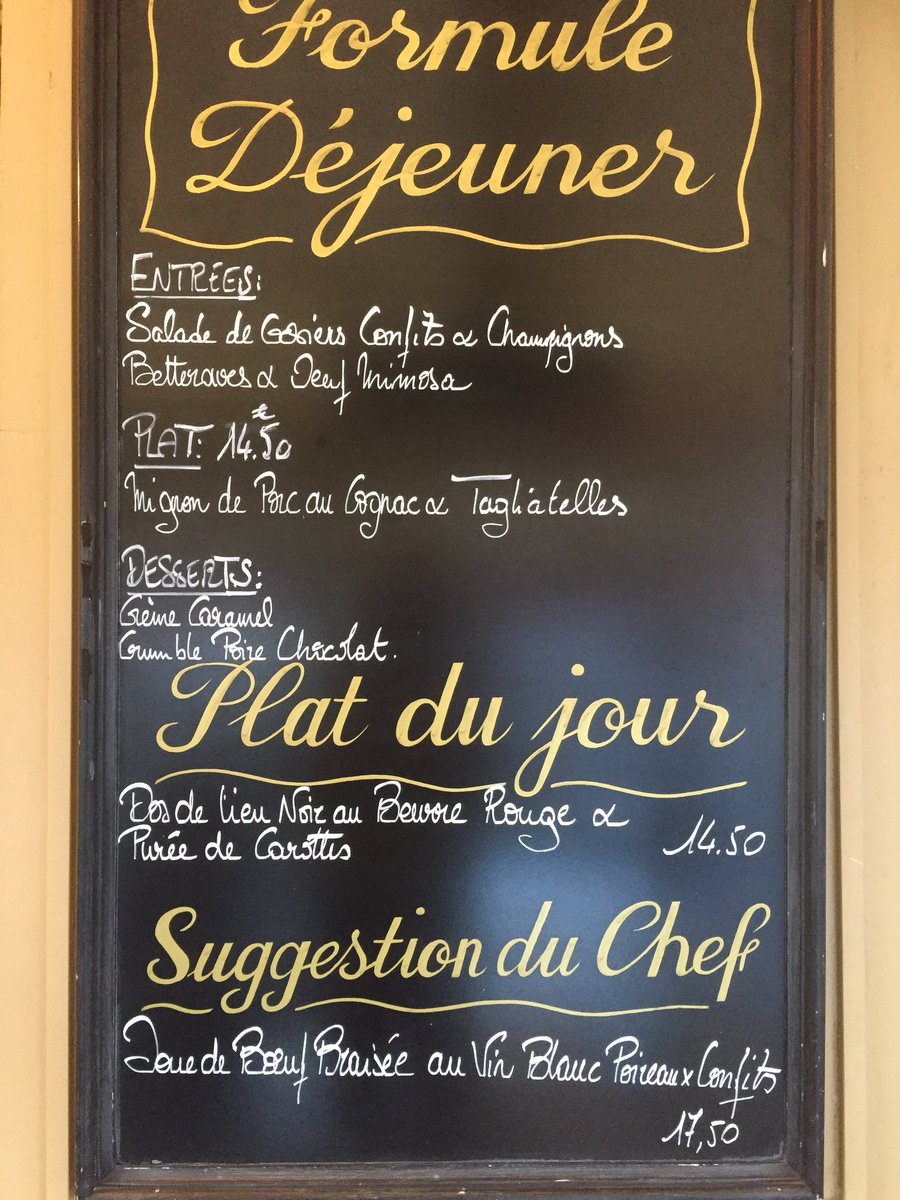 Formule
Déjeuner
ENTRÉES:
Salade de Gésiers Confits & Champignons
Betteraves & Oeuf Mimosa
PLAT: 14.50 €
Mignon de Porc au Cognac & Tagliatelles
DESSERTS:
Crème Caramel
Crumble Poire Chocolat.
Plat du jour
Dos de Lieu Noir au Beurre Rouge &
Purée de Carottes
14.50
Suggestion du Chef
Joue de Bœuf Braisée au Vin Blanc Poireaux Confits
17,50